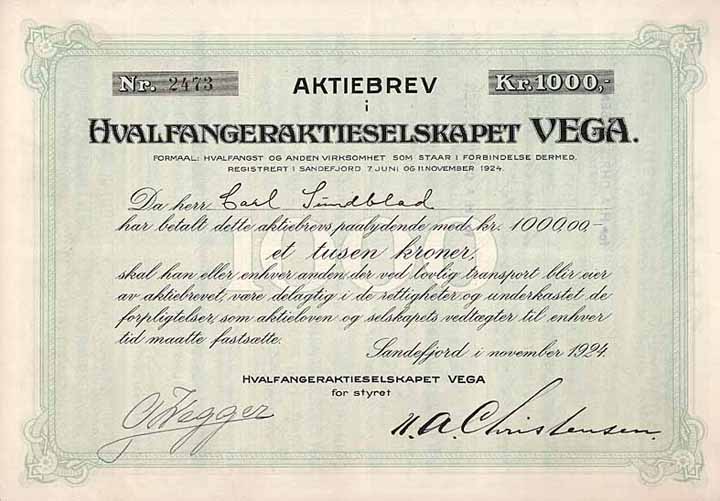 Nr. 2473
AKTIEBREV
Kr. 1000,-
i
HVALFANGERAKTIESELSKAPET VEGA.
FORMAAL: HVALFANGST OG ANDEN VIRKSOMHET SOM STAAR I FORBINDELSE DERMED.
REGISTRERT I SANDEFJORD 7 JUNI OG 11 NOVEMBER 1924.
Da herr Carl Sundblad
har betalt dette aktiebrevs paalydende med kr. 1000,00-
1000
et tusen kroner,
skal han eller enhver anden, der ved lovlig transport blir eier
av aktiebrevet, være delagtig i de rettigheter og underkastet de
forpligtelser, som aktieloven og selskapets vedtægter til enhver
tid maatte fastsætte.
Sandefjord i november 1924.
HVALFANGERAKTIESELSKAPET VEGA
for styret
N. A. Christensen.